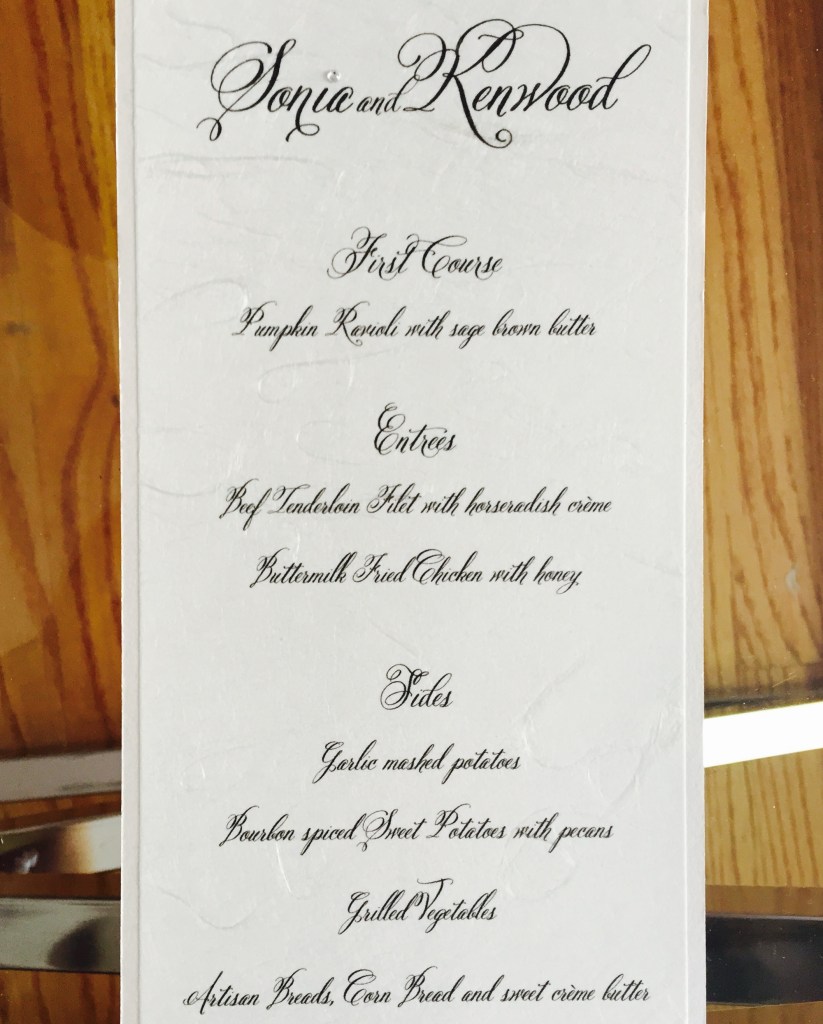 Sonia and Kenwood
First Course
Pumpkin Ravioli with sage brown butter
Entrées
Beef Tenderloin Filet with horseradish crème
Buttermilk Fried Chicken with honey
Sides
Garlic mashed potatoes
Bourbon spiced Sweet Potatoes with pecans
Grilled Vegetables
Artisan Breads, Corn Bread and sweet crème butter